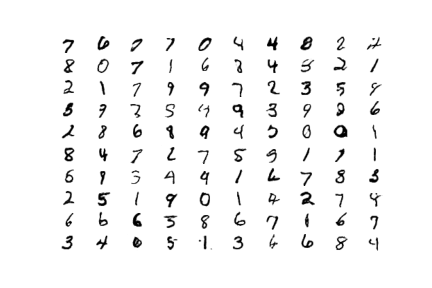 7 6 7 7 0 4 4 8 2 2
8 0 7 1 6 3 4 3 2 1
2 1 7 9 9 7 2 3 5 8
5 7 3 5 4 9 3 9 8 6
2 8 6 8 9 4 5 0 0 1
8 4 7 2 7 5 9 1 1 1
6 9 3 4 9 1 6 7 8 3
2 5 1 9 0 1 4 2 7 4
6 6 6 5 8 6 7 1 6 7
3 4 0 5 1 3 6 6 8 4